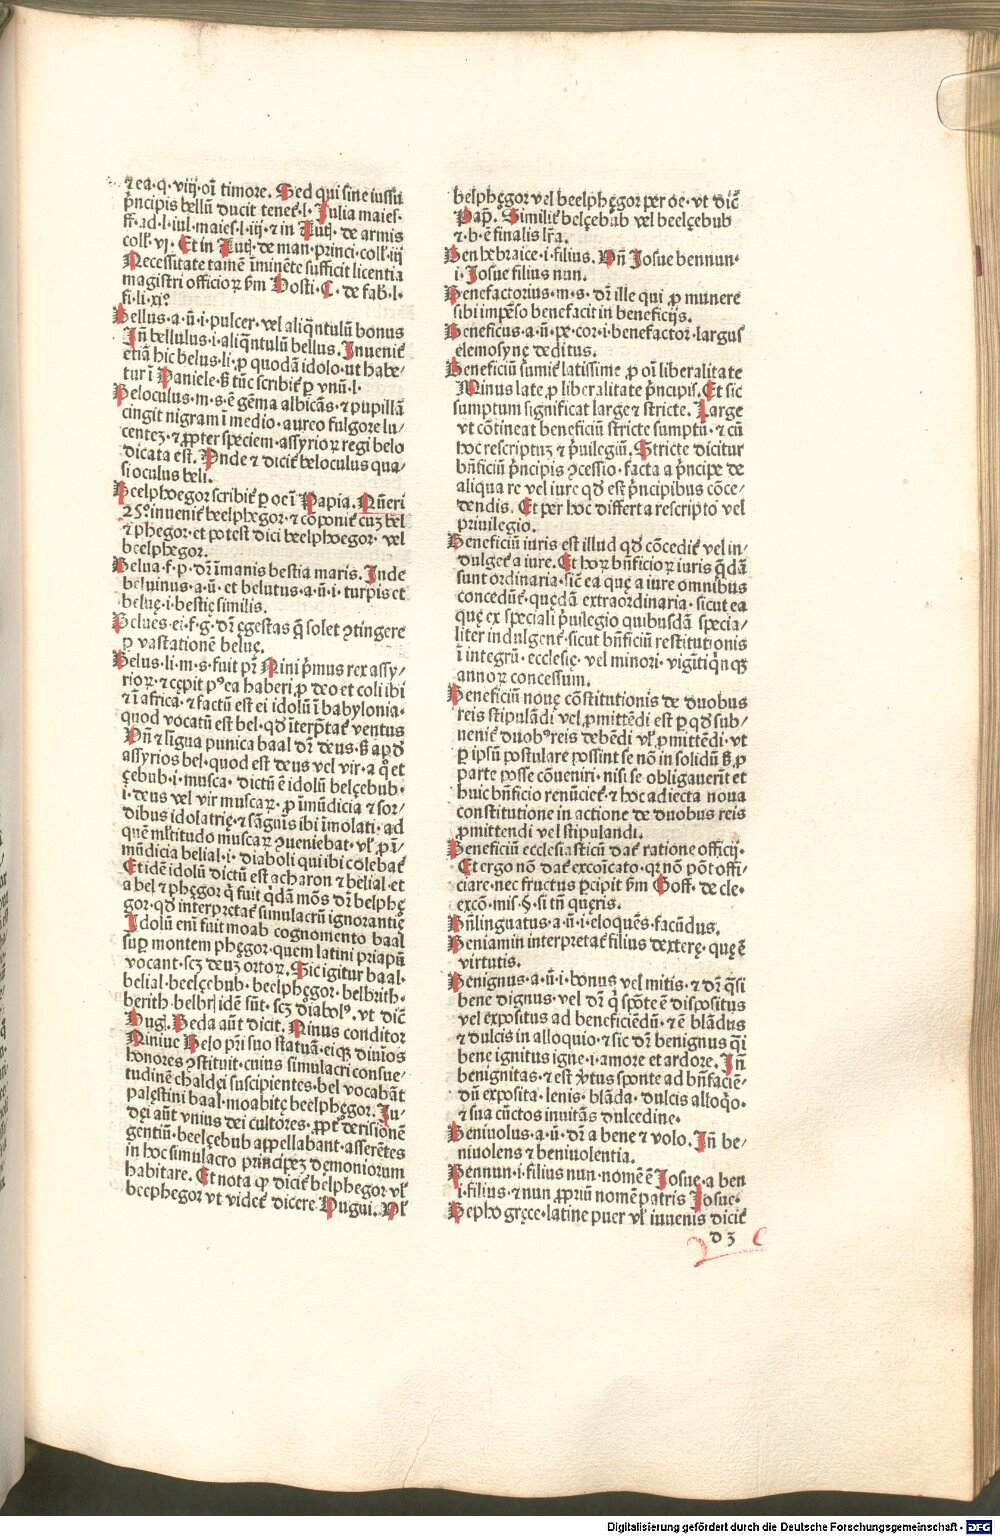 ⁊ ea·q·viij·oī timore. Sed qui sine iussu
p̄ncipis bellū ducit teneť·l·Iulia maies·
ff·ad·l·iul·maies·l·iij·⁊ in Auť· de armis
coll·vj· Et in Auť·de man·princi·coll·iij
Necessitate tamē īminēte sufficit licentia
magistri officioꝝ ẜm Hosti·C·de fab·l·
fi·li·xjͦ
Bellus·a·ū·i·pulcer·vel aliq̄ntulū bonus
Iñ bellulus·i·aliq̄ntulū bellus. Inuenit̃
etiā hic belus·li·ꝓ quodā idolo·ut habe⸗
tur ī Daniele·ẜ tūc scribit̃ ꝑ vnū·l·
Beloculus·m·s·ē gēma albicās·⁊ pupillā
cingit nigram ī medio·aureo fulgore lu⸗
centeꝫ·⁊ ꝓpter speciem·assyrioꝝ regi belo
dicata est. Vnde ⁊ dicit̃ beloculus qua⸗
si oculus beli.
Beelphoegor scribit̃ ꝑ oe ī Papia. Nūeri
25ͦ inuenit̃ beelphegor·⁊ cōponit̃ cuꝫ bel
⁊ phegor·et potest dici beelphoegor· vel
beelphegor.
Belua·f·p·dr̄ īmanis bestia maris. Inde
beluinus·a·ū· et belutus·a·ū·i·turpis et
beluę·i·bestię similis.
Belues·ei·f·g·dr̄ ęgestas q̄ solet ꝯtingere
ꝑ vastationē beluę.
Belus·li·m·s·fuit pr̄ Nini p̄mus rex assy⸗
rioꝝ·⁊ cępit pꝰ ea haberi ꝓ deo et coli ibi
⁊ ī africa·⁊ factū est ei idolū ī babylonia·
quod vocatū est bel·qđ īterp̄tat̃ ventus
Vñ ⁊ līgua punica baal dr̄ deus·ẜ apđ
assyrios bel·quod est deus vel vir·a q̊ et
çebub·i·musca· dictū ē idolū belçebub·
i·deus vel vir muscaꝝ· ꝓ īmūdicia ⁊ sor⸗
dibus idolatrię·⁊ sāguīs ibi īmolati·ad
quē ml̃titudo muscaꝝ ꝯueniebat· vl̃ ꝓ ī⸗
mūdicia belial·i· diaboli qui ibi colebat̃
Et idē idolū dictū est acharon ⁊ belial·et
a bel ⁊ phęgor q̊ fuit q̄dā mōs dr̄ belphę
gor·qđ interpretat̃ simulacrū ignorantię
Idolū eni fuit moab cognomento baal
suꝑ montem phęgor·quem latini priapū
vocant·scꝫ deuꝫ ortoꝝ. Sic igitur baal·
belial·beelçebub· beelphęgor· belbrith·
berith·belbel idē sūt·scꝫ diabolꝰ·vt dic̄
Hug. Beda aūt dicit. Ninus conditor
Niniuę Belo pri suo statuā·eiqꝫ diuīos
honores ꝯstituit·cuius simulacri consue⸗
tudinē chaldęi suscipientes·bel vocabāt
palęstini baal·moabitę beelphęgor. Iu⸗
dęi aūt vnius dei cultores· ꝓpt̃ derisionē
gentiū·beelçebub appellabant·asserētes
in hoc simulacro principeꝫ dęmoniorum
habitare. Et nota ꝙ dicit̃ belphegor vl̃
beephegor vt videt̃ dicere Hugui. Vl̃
belphęgor vel beelphęgor per oe·vt dic̄
Pap̄. Similiť belçebub vel beelçebub
⁊·b·ē finalis lr̄a.
Ben hebraice·i·filius. Vñ Iosue bennun·
i·Iosue filius nun.
Benefactorius·m·s·dr̄ ille qui ꝓ munere
sibi impēso benefacit in beneficijs.
Beneficus·a·ū·pe·cor·i·benefactor·largus
elemosynę deditus.
Beneficiū sumit̃ latissime ꝓ oī liberalitate
Minus late ꝓ liberalitate p̄ncipis. Et sic
sumptum significat large ⁊ stricte. Large
vt cōtineat beneficiū stricte sumptū·⁊ cū
hoc rescriptuꝫ ⁊ p̄uilegiū. Stricte dicitur
bn̄ficiū p̄ncipis ꝯcessio·facta a p̄ncipe de
aliqua re vel iure qđ est p̄ncipibus cōce⸗
dendis. Et per hoc differt a rescripto vel
priuilegio.
Beneficiū iuris est illud qđ cōcedit̃ vel in⸗
dulget̃ a iure. Et hoꝝ bn̄ficioꝝ iuris q̄dā
sunt ordinaria·sic̄ ea quę a iure omnibus
concedūt̃·quędā extraordinaria·sicut ea
quę ex speciali p̄uilegio quibusdā specia⸗
liter indulgent̃·sicut bn̄ficiū restitutionis
ī integrū·ecclesię·vel minori·vigīti qīnqꝫ
annoꝝ concessum.
Beneficiū nouę cōstitutionis de duobus
reis stipulādi vel ꝓmittēdi est ꝑ qđ sub⸗
uenit̃ duobꝰ reis debēdi vl̃ ꝓmittēdi·vt
ꝑ ipsū postulare possint se nō in solidū ẜ ꝓ
parte posse cōueniri·nisi se obligauerīt et
huic bn̄ficio renūciet̃·⁊ hoc adiecta noua
constitutione in actione de duobus reis
ꝓmittendi vel stipulandi.
Beneficiū ecclesiasticū dat̃ ratione officij·
Et ergo nō dat̃ excōicato·qꝛ nō pōt offi⸗
ciare·nec fructus ꝑcipit ẜm Goff·de cle·
excō·mis·§·si tn̄ quęris.
Bn̄linguatus·a·ū·i·eloquēs·facūdus.
Beniamin interpretat̃ filius dexterę·quę ē
virtutis.
Benignus·a·ū·i·bonus vel mitis·⁊ dr̄ q̄si
bene dignus·vel dr̄ q̊ spōte ē dispositus
vel expositus ad beneficiēdū·⁊ ē blādus
⁊ dulcis in alloquio·⁊ sic dr̄ benignus q̄si
bene ignitus igne·i·amore et ardore. Iñ
benignitas·⁊ est v̓tus sponte ad bn̄faciē⸗
dū exposita·lenis·blāda·dulcis alloq̊o·
⁊ sua cūctos inuitās dulcedine·
Beniuolus·a·ū·dr̄ a bene ⁊ volo. Iñ be⸗
niuolens ⁊ beniuolentia.
Bennun·i·filius nun·nomē ē Iosue·a ben
i·filius·⁊ nun ꝓpriū nomē patris Iosue·
Bepho gręce·latine puer vl̃ iuuenis dicit̃
d 3
Digitalisierung gefördert durch die Deutsche Forschungsgemeinschaft - DFG